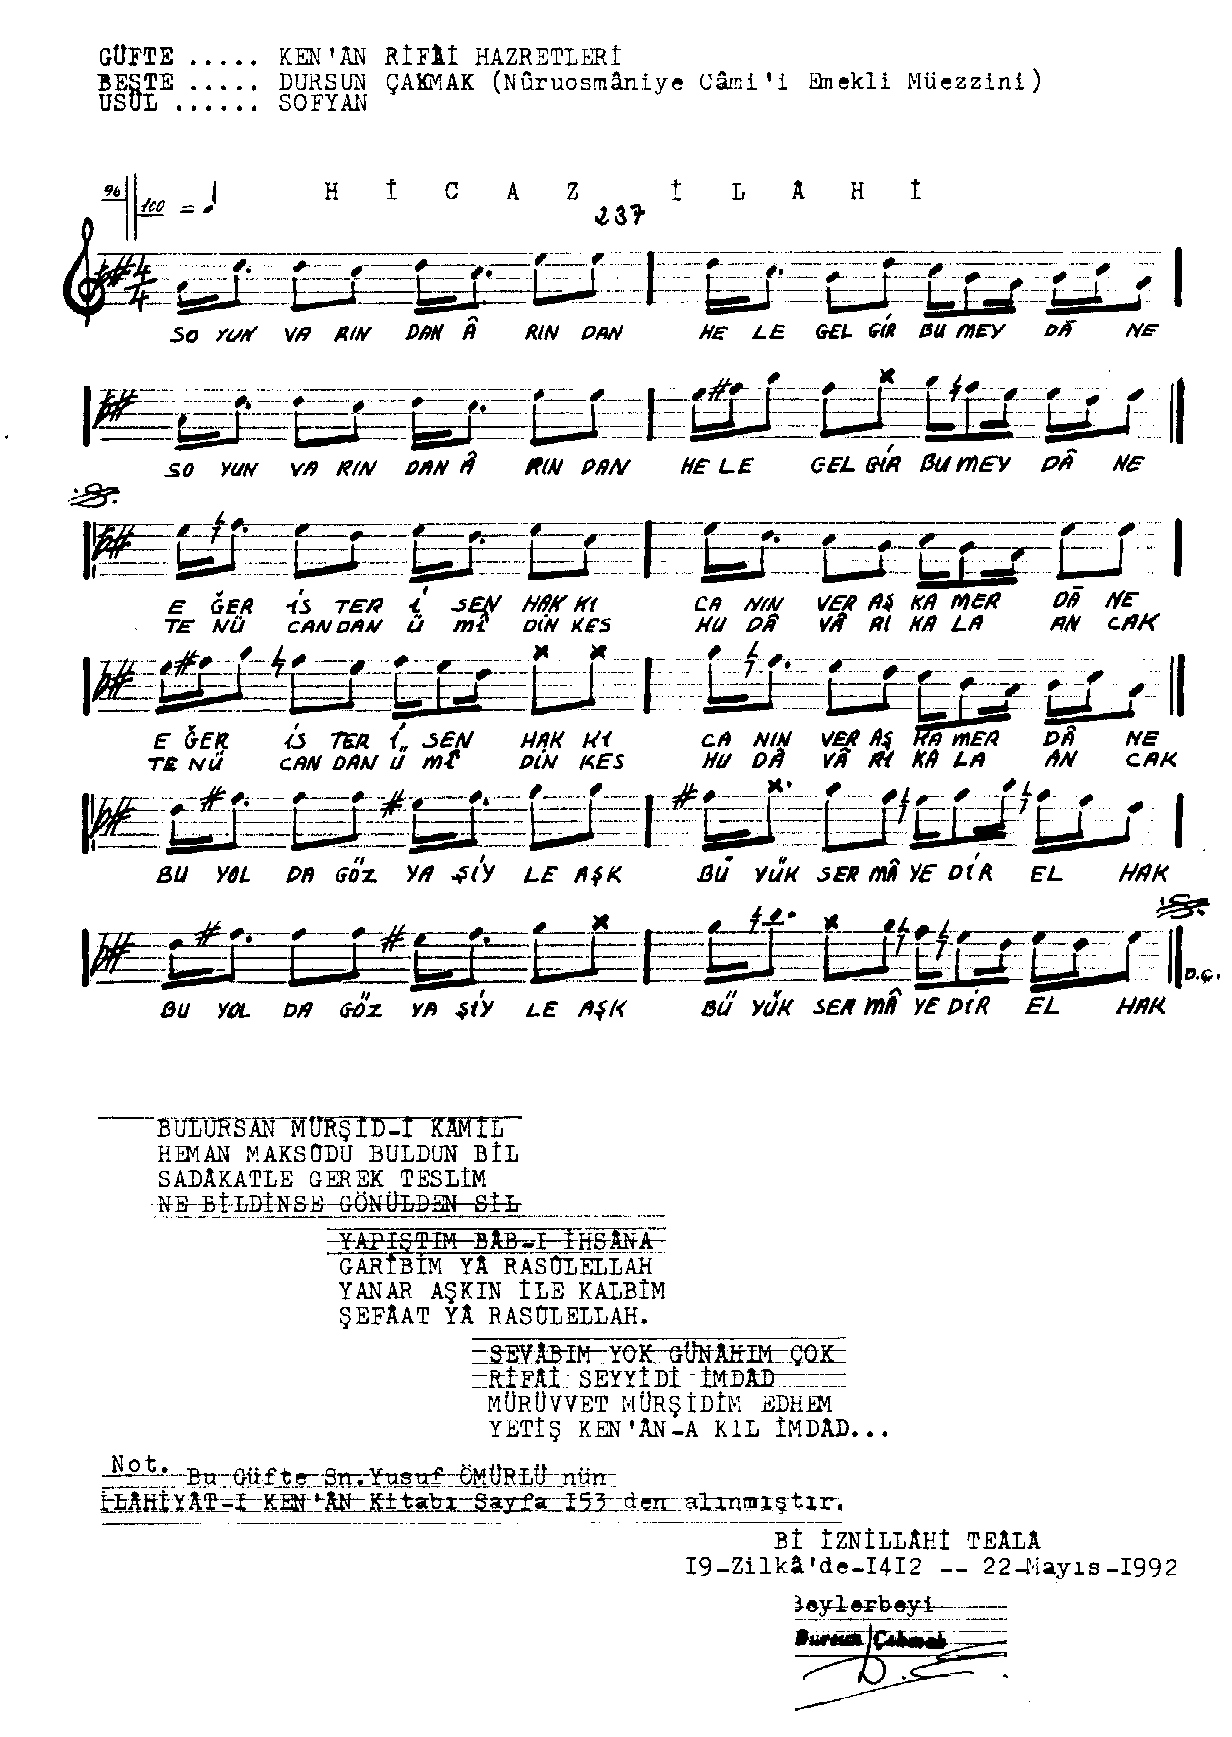 GÜFTE ..... KEN'ÂN RİFÂİ HAZRETLERİ
BESTE ..... DURSUN ÇAKMAK (Nûruosmâniye Câmi'i Emekli Müezzini)
USÛL ...... SOFYAN
96 100 =
HİCAZ İLÂHİ
237
4/4
SO YUN VA RIN DAN Â RIN DAN HE LE GEL GİR BU MEY DÂ NE
SO YUN VA RIN DAN Â RIN DAN HE LE GEL GİR BU MEY DÂ NE
E ĞER İS TER İ SEN HAK KI CA NIN VER AŞ KA MER DÂ NE
TE NÜ CAN DAN Ü MÎ DİN KES HU DÂ VÂ RI KA LA AN CAK
E ĞER İS TER İ SEN HAK KI CA NIN VER AŞ KA MER DÂ NE
TE NÜ CAN DAN Ü MÎ DİN KES HU DÂ VÂ RI KA LA AN CAK
BU YOL DA GÖZ YA ŞİY LE AŞK BÜ YÜK SER MÂ YE DİR EL HAK
BU YOL DA GÖZ YA ŞİY LE AŞK BÜ YÜK SER MÂ YE DİR EL HAK
D.Ç.
BULURSAN MÜRŞİD-İ KÂMİL
HEMAN MAKSÛDU BULDUN BİL
SADÂKATLE GEREK TESLİM
NE BİLDİNSE GÖNÜLDEN SİL
YAPIŞTIM BÂB-I İHSÂNA
GARÎBİM YÂ RASÛLELLAH
YANAR AŞKIN İLE KALBİM
ŞEFÂAT YÂ RASÛLELLAH.
SEVÂBIM YOK GÜNÂHIM ÇOK
RİFÂİ SEYYİDİ İMDÂD
MÜRÜVVET MÜRŞİDİM EDHEM
YETİŞ KEN'ÂN-A KIL İMDÂD...
Not. Bu Güfte Sn.Yusuf ÖMÜRLÜ nün
İLÂHİYÂT-I KEN'ÂN Kitabı Sayfa I53 den alınmıştır.
Bİ İZNİLLÂHİ TEÂLÂ
I9-Zilkâ'de-I4I2 -- 22-Mayıs-I992
Beylerbeyi
Dursun Çakmak